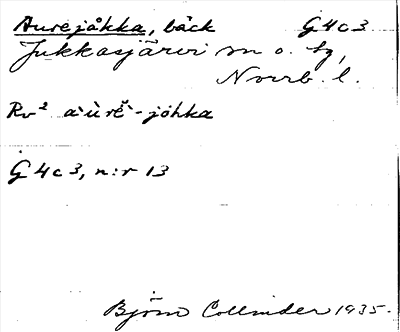 Aurejåkka, bäck G4c3
Jukkasjärvi sn o. tg,
Norrb. l.
Rv² a·ùrĕ̀-jôhka
G4c3, n:r 13
Björn Collinder 1935.